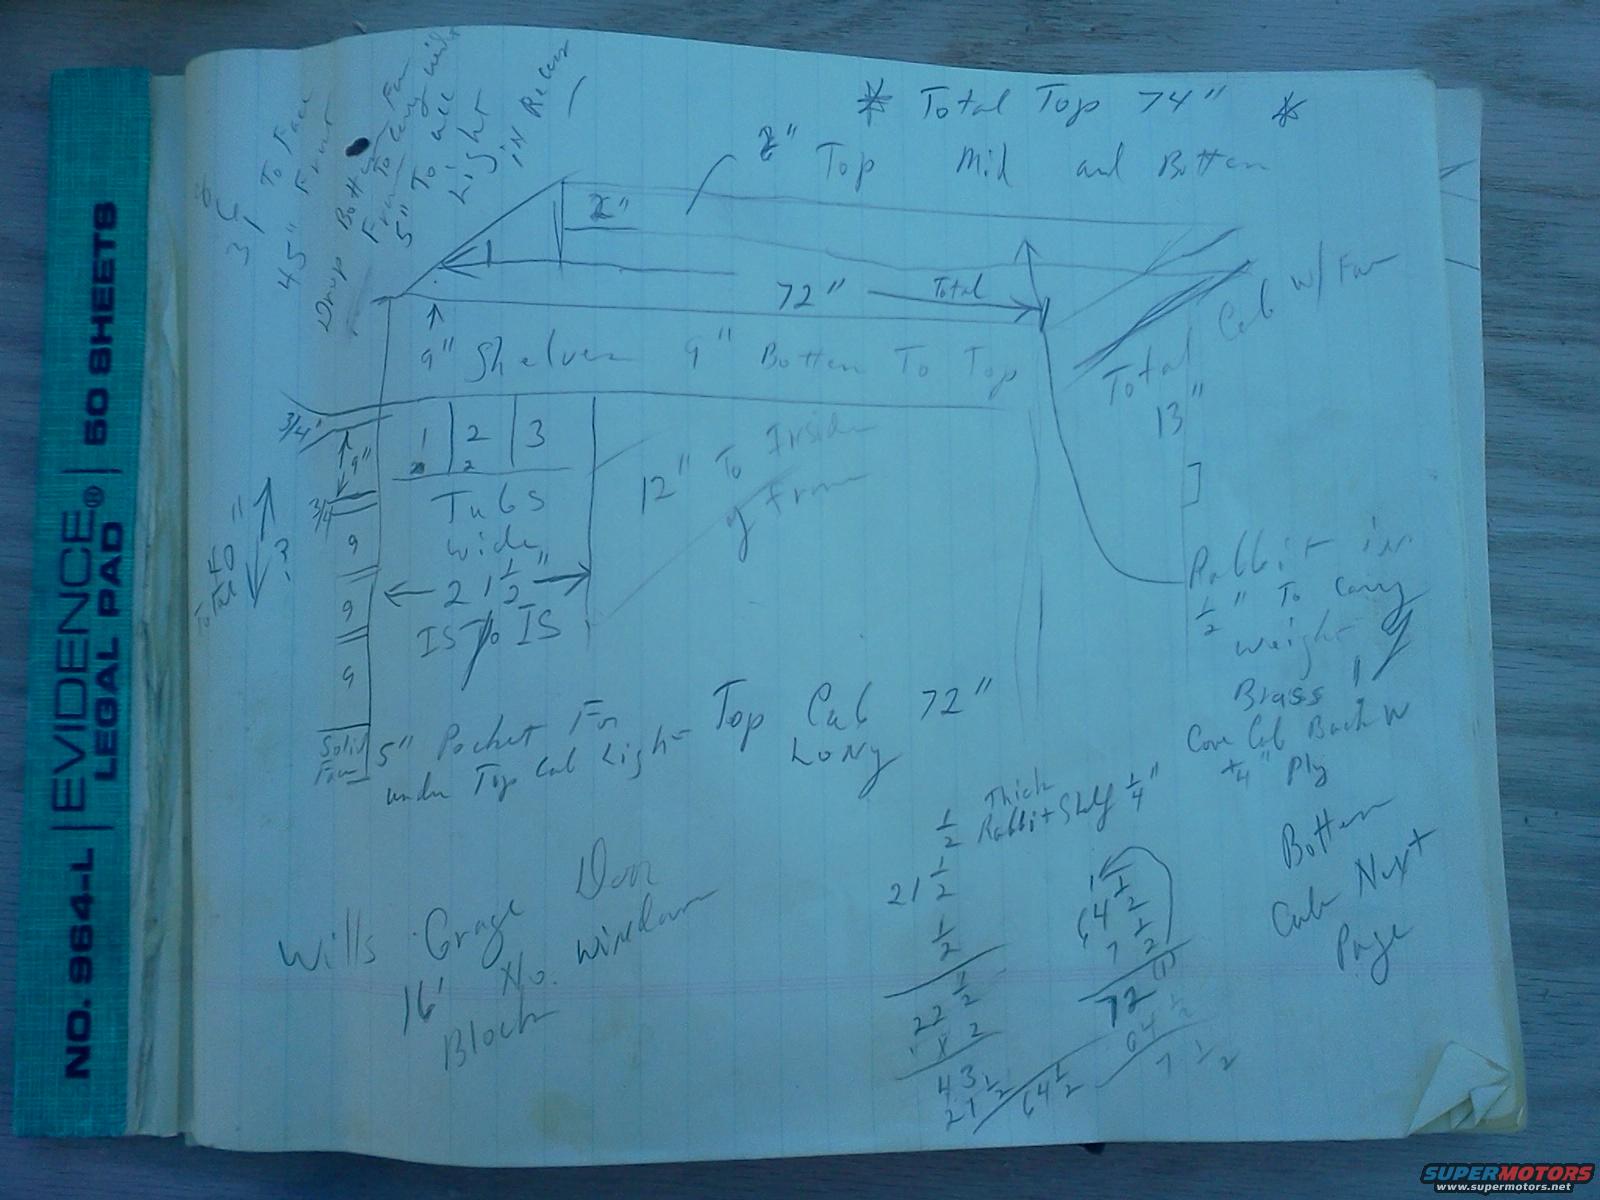 NO. 964-L | EVIDENCE® | 50 SHEETS
LEGAL PAD
* Total Top 74" *
2" Top Mid and Bottem
To Face
45" Front
31
Drop Bottem
5" To
Light
in Rear
2"
72" Total
9" Shelves 9" Bottem To Top
Total Cab w/
13"
3/4"
9"
3/4
9
9
9
1 2 3
Tubs
wide
21 1/2"
IS To IS
12" To Inside
of
40"
Total
?
Rabbit in
1/2" To Carry
weight
Brass
Cove Cab Back W
1/4" Ply
Solid
5" Pocket For
under Top Cab Light
Top Cab 72"
Long
Thick
1/2 Rabbit Shelf 1/4"
21 1/2
1/2
22 1/2
x 2
43 1/2
21 1/2
64 1/2
1
64 1/2
7 1/2
72 (1)
64 1/2
7 1/2
Bottem
Cab Next
Page
Wills Grage Door
16' No. window
Block
SUPERMOTORS
www.supermotors.net